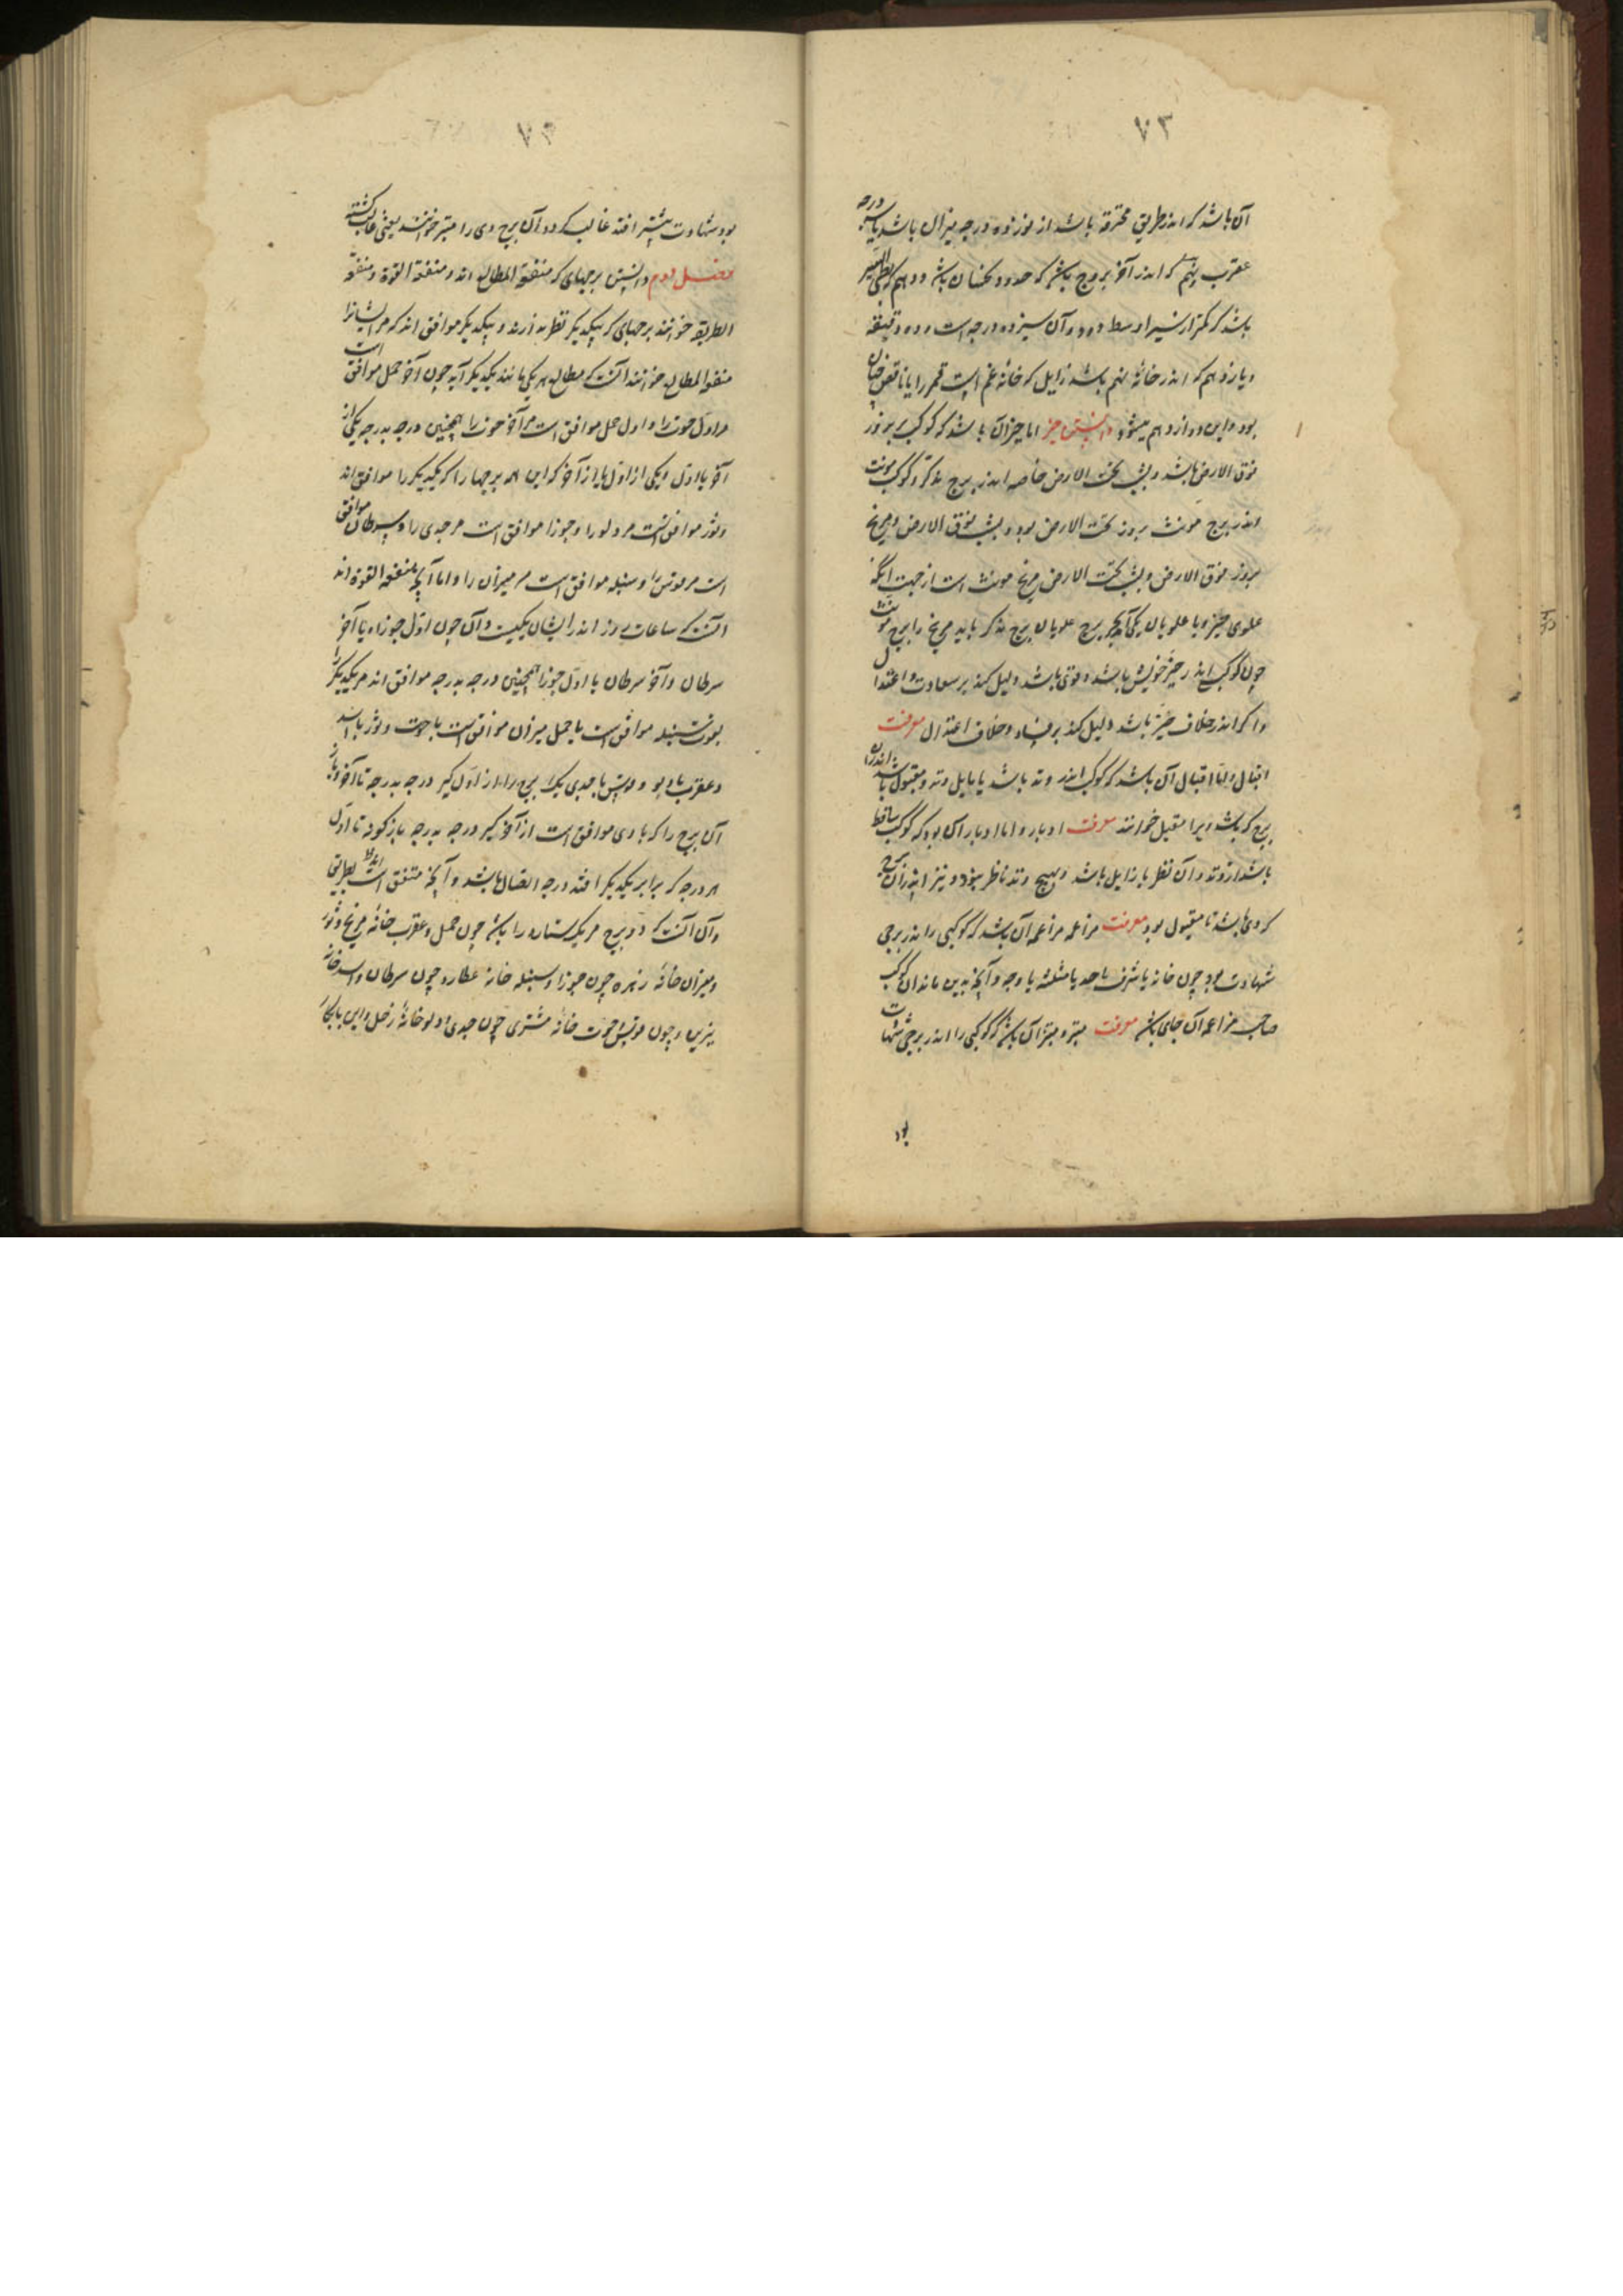 ۷۳
آن باشد که اندر طریق محترقه باشد از نوزده درجه میزان باشد تا سه درجه
عقرب نهم که اندر آخر بروج باشد که حدود نحسان باشد و دهم که بطی السیر
باشد که کمتر از سیر اوسط رود و آن سیزده درجه است و ده دقیقه
و یازدهم که اندر خانه نهم باشد زایل که خانه غم است قمر را یا ناقص
بود و این دوازدهم میشود دانستن حیز اما حیز آن باشد که کوکب بروز
فوق الارض باشد و بشب تحت الارض خاصه اندر برج مذکر و کوکب مونث
اندر برج مونث بروز تحت الارض بود و بشب فوق الارض و مریخ
بروز فوق الارض و بشب تحت الارض مریخ مونث است از جهت آنکه
علوی حیز و با علویان یکی برج علویان برج مذکر باید مریخ را برج مونث
چون کوکب اندر حیز خویش باشد و قوی باشد دلیل کند بر سعادت و اعتدال
و اگر اندر خلاف حیز باشد دلیل کند بر فساد و خلاف اعتدال معرفت
اقبال و اما اقبال آن باشد که کوکب اندر وتد باشد یا مایل وتد و مقبول باشد اندران
برج که باشد ویرا مقبل خوانند معرفت ادبار و اما ادبار آن بود که کوکب ساقط
باشد از وتد و آن نظر یا زایل باشد و بهیچ وتد ناظر نبود و نیز اندر آن برج
که وی باشد نا مقبول بود معرفت مزاعمه مزاعمه آن باشد که کوکبی را اندر برجی
شهادت بود چون خانه یا شرف یا حد یا مثلثه یا وجه و آنچه بدین ماند آن کوکب
صاحب مزاعمه آن جای باشد معرفت مبتز و مبتز آن باشد که کوکبی را اندر برجی شهادت
بود
۷۴
بود شهادت بیشتر افتد غالب گردد آن برج وی را مبتز خوانند یعنی غالب گشته
فصل دوم دانستن برجهای که متفقة المطالع اند و متفقة القوة و متفقة
الطریقه خوانند برجهای که بیکدیگر نظر ندارند و بیکدیگر موافق اند که مر ایشانرا
متفق المطالع خوانند آنست که مطالع هر یکی مانند یکدیگر آید چون آخر حمل موافق است
مر اول حوت را و اول حمل موافق است مر آخر حوت را همچنین درجه بدرجه یکی از
آخر با اول و یکی از اول با از آخر که این همه برجها را که یکدیگر را موافق اند
و ثور موافق است مر دلو را و جوزا موافق است مر جدی را و سرطان موافق
است مر قوس را و سنبله موافق است مر میزان را و اما آنچه متفقه القوة اند
آنست که ساعات روز اندر ایشان یکیست و آن چون اول جوزا با آخر
سرطان و آخر سرطان با اول جوزا همچنین درجه بدرجه موافق اند مر یکدیگر را
سنبله موافق است با حمل میزان موافق است با حوت و ثور با اسد
و عقرب با دلو و قوس با جدی یک برج را از اول گیر درجه بدرجه تا آخر و باز
آن برج را که با وی موافق است از آخر گیر درجه بدرجه باز گونه تا اول
هر درجه که برابر یکدیگر افتد درجه اتصال باشد و آنچه متفق است بطریق
و آن آنست که دو برج مر یک ستاره را باشد چون حمل و عقرب خانه مریخ و ثور
و میزان خانه زهره چون جوزا و سنبله خانه عطارد چون سرطان و اسد خانه
نیرین و چون قوس و حوت خانه مشتری چون جدی و دلو خانه زحل و این